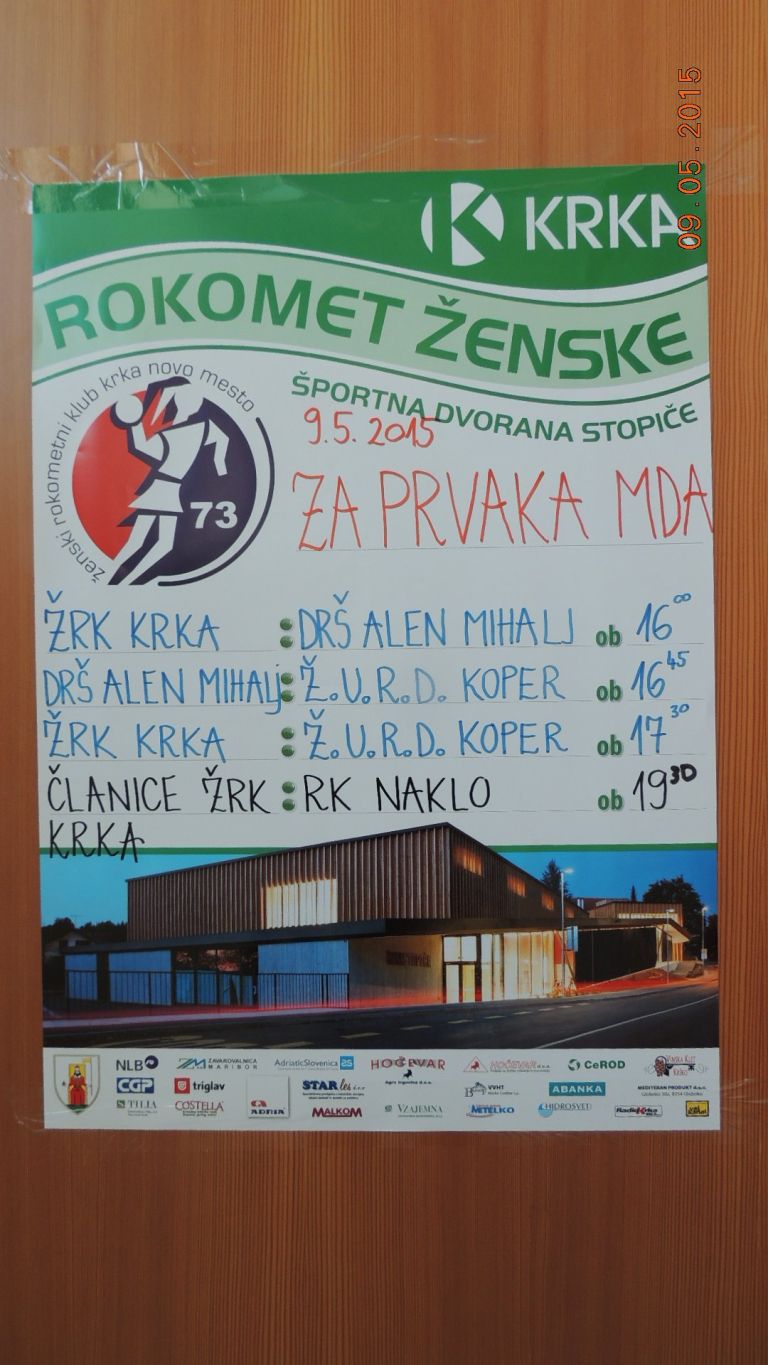 09.05.2015
KRKA
ROKOMET ŽENSKE
ženski rokometni klub krka novo mesto
73
ŠPORTNA DVORANA STOPIČE
9.5.2015
ZA PRVAKA MDA
ŽRK KRKA : DRŠ ALEN MIHALJ ob 16⁰⁰
DRŠ ALEN MIHALJ : Ž.U.R.D. KOPER ob 16⁴⁵
ŽRK KRKA : Ž.U.R.D. KOPER ob 17³⁰
ČLANICE ŽRK : RK NAKLO ob 19³⁰
KRKA
NLB ZAVAROVALNICA MARIBOR AdriaticSlovenica HOČEVAR HOČEVAR d.o.o. CeROD VINSKA KLET
CGP triglav STAR les VVHT ABANKA MEDITERAN PRODUKT d.o.o.
TILIA COSTELLA ADRIA MALKOM VZAJEMNA METELKO HIDROSVET Radio Krka